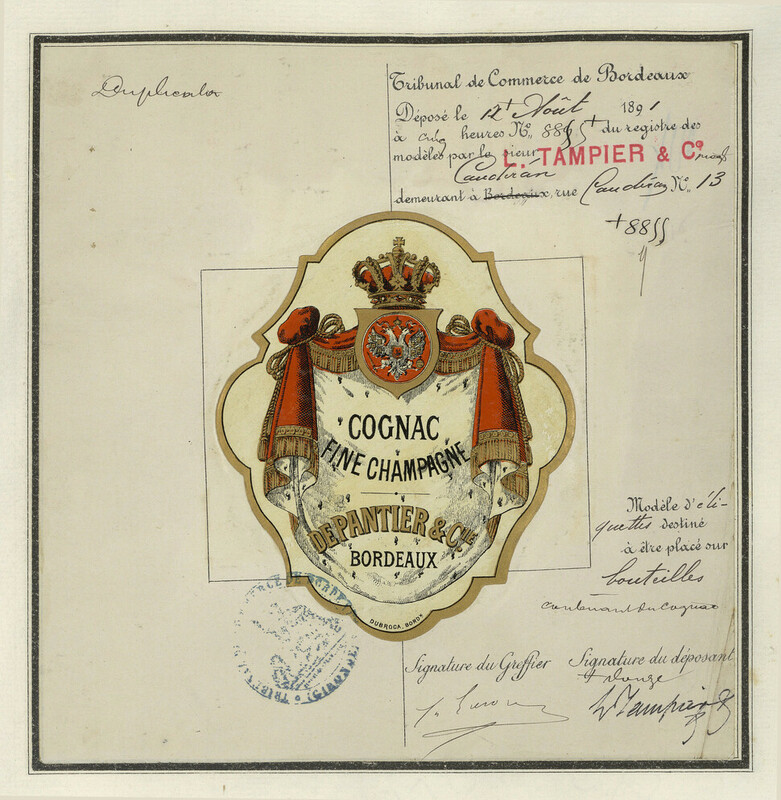 Duplicata
Tribunal de Commerce de Bordeaux
Déposé le 12 Août 1891
à cinq heures No. 8855 du registre des
modèles par le sieur L. TAMPIER & Co
Caudéran
demeurant à Bordeaux, rue Caudéran No. 13
+8855
COGNAC
FINE CHAMPAGNE
DEPANTIER & CIE
BORDEAUX
DUBROCA, BORDX
Modèle d'éti-
quettes destiné
à être placé sur
bouteilles
contenant du cognac
Signature du Greffier Signature du déposant
L Tampier